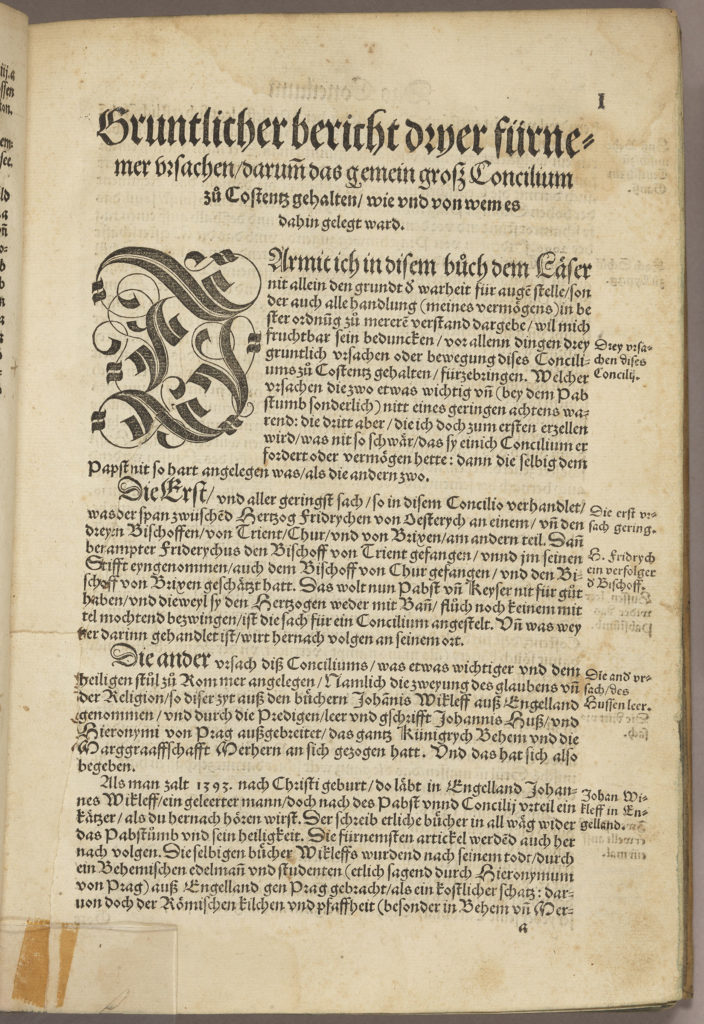 I
Gruntlicher bericht dryer fürne⸗
mer vrsachen/darum̃ das gemein groß Concilium
zů Costentz gehalten/ wie vnd von wem es
dahin gelegt ward.
DArmit ich in disem bůch dem Läser
nit allein den grundt ð warheit für augẽ stelle/son
der auch alle handlung (meines vermögens) in be
ster ordnũg zů mererẽ verstand dargebe/ wil mich
fruchtbar sein beduncken/ vor allenn dingen drey
gruntlich vrsachen oder bewegung dises Concili⸗
ums zů Costentz gehalten/ fürzebringen. Welcher
vrsachen die zwo etwas wichtig vñ (bey dem Pab
stumb sonderlich) nitt eines geringen achtens wa⸗
rend: die dritt aber/ die ich doch zum ersten erzellen
wird/was nit so schwär/das sy einich Concilium er
fordert oder vermögen hette: dann die selbig dem
Papst nit so hart angelegen was/als die andern zwo.
Drey vrsa⸗
chen dises
Concilij.
Die Erst/ vnd aller geringst sach/so in disem Concilio verhandlet/
was der span zwüschẽd Hertzog Fridrychen von Oesterych an einem/ vñ den
dreyen Bischoffen/von Trient/Chur/vnd von Brixen/am andern teil. Dañ
berampter Friderychus den Bischoff von Trient gefangen/ vnnd jm seinen
Stifft eyngenommen/auch dem Bischoff von Chur gefangen/ vnd den Bi⸗
schoff von Brixen geschätzt hatt. Das wolt nun Pabst vñ Keyser nit für gůt
haben/vnd dieweyl sy den Hertzogen weder mit Bañ/ flůch noch keinem mit
tel mochtend bezwingen/ist die sach für ein Concilium angestelt. Vñ was wey
ter darinn gehandlet ist/wirt hernach volgen an seinem ort.
Die erst vr⸗
sach gering.
H. Fridrych
ein verfolger
ð Bischoff.
Die ander vrsach diß Conciliums/ was etwas wichtiger vnd dem
heiligen stůl zů Rom mer angelegen/ Namlich die zweyung des glaubens vñ
der Religion/so diser zyt auß den büchern Johãnis Wikleff auß Engelland
genommen/ vnd durch die Predigen/leer vnd gschrifft Johannis Huß/vnd
Hieronymi von Prag außgebreitet/ das gantz Künigrych Behem vnd die
Marggraaffschafft Merhern an sich gezogen hatt. Vnd das hat sich also
begeben.
Die and vr⸗
sach/des
Hussen leer.
Als man zalt 1393. nach Christi geburt/ do läbt in Engelland Johan⸗
nes Wikleff/ein geleerter mann/doch nach des Pabst vnnd Concilij vrteil ein
kätzer/ als du hernach hören wirst. Der schreib etliche bücher in all wäg wider
das Pabstůmb vnd sein heiligkeit. Die fürnemsten artickel werdẽd auch her
nach volgen. Die selbigen bücher Wikleffs wurdend nach seinem todt/durch
ein Behemischen edelmañ vnd studenten (etlich sagend durch Hieronymum
von Prag) auß Engelland gen Prag gebracht/als ein kostlicher schatz: dar⸗
uon doch der Römischen kilchen vnd pfaffheit (besonder in Behem vñ Mer⸗
Johan Wi⸗
kleff in En⸗
gelland.
a